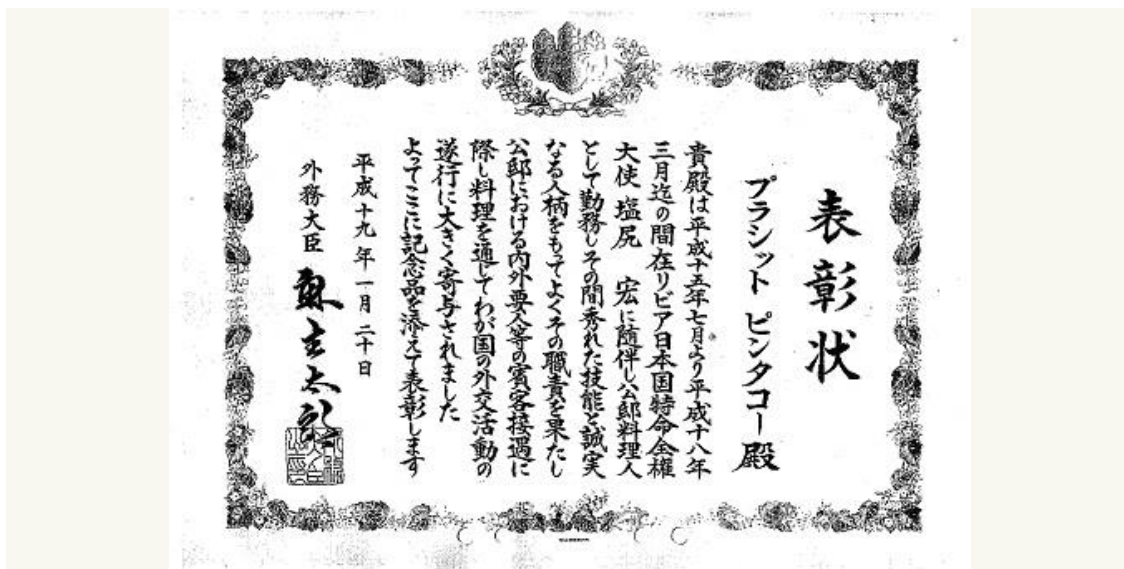 表彰状
プラシット ピンタコー 殿
貴殿は平成十五年七月より平成十八年
三月迄の間在リビア日本国特命全権
大使塩尻 宏に随伴し公邸料理人
として勤務しその間秀れた技能と誠実
なる人柄をもってよくその職責を果たし
公邸における内外要人等の賓客接遇に
際し料理を通じてわが国の外交活動の
遂行に大きく寄与されました
よってここに記念品を添えて表彰します
平成十九年一月二十日
外務大臣 麻生太郎